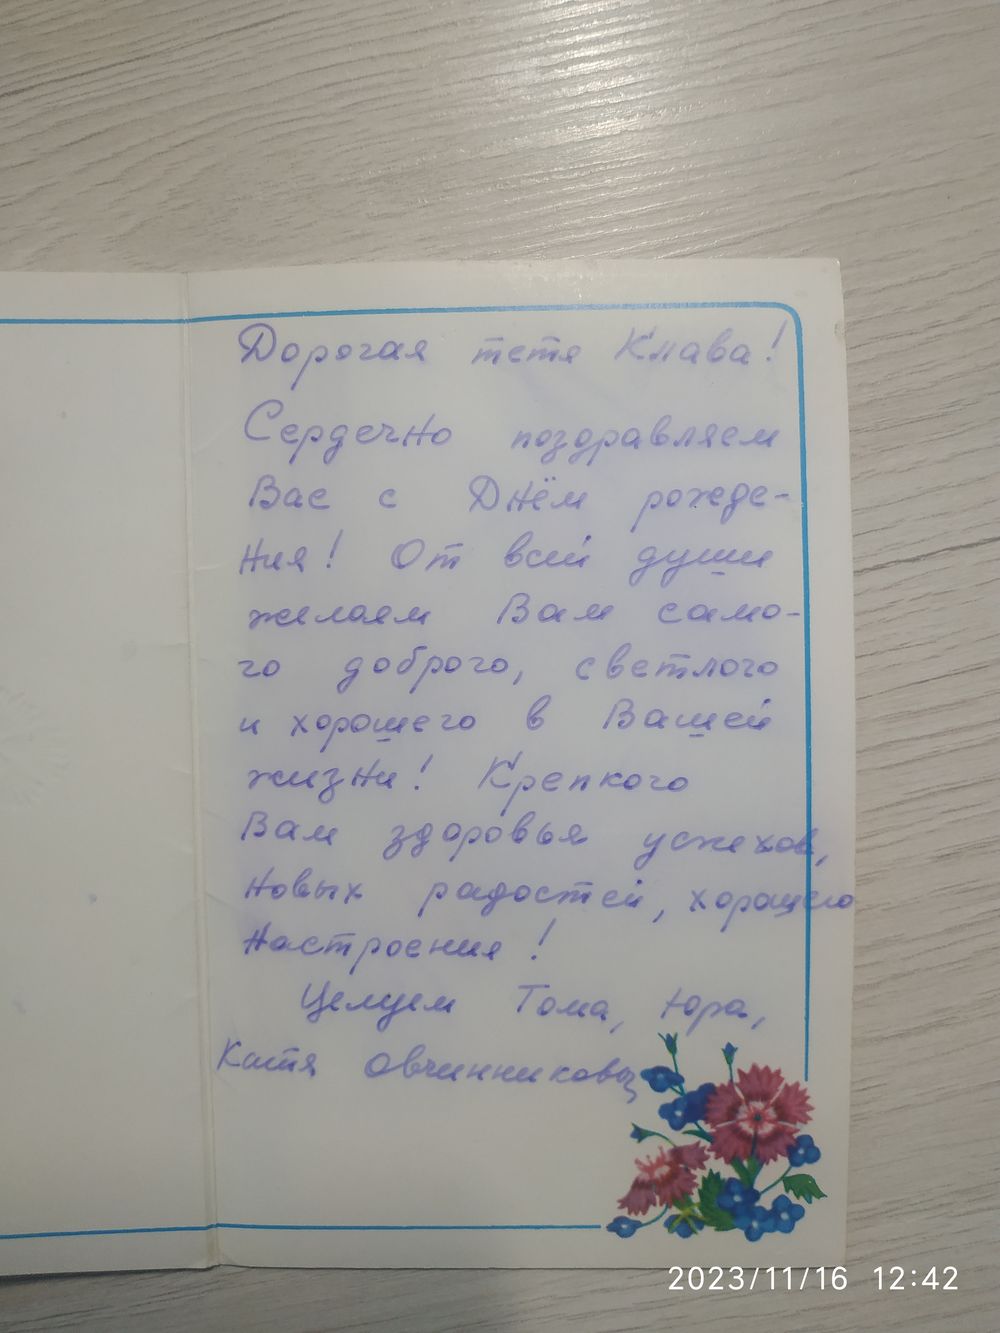 Дорогая тетя Клава!
Сердечно поздравляем
Вас с Днём рожде-
ния! От всей души
желаем Вам само-
го доброго, светлого
и хорошего в Вашей
жизни! Крепкого
Вам здоровья успехов,
новых радостей, хорошего
настроения!
Целуем Тома, Юра,
Катя Овчинниковы
2023/11/16 12:42